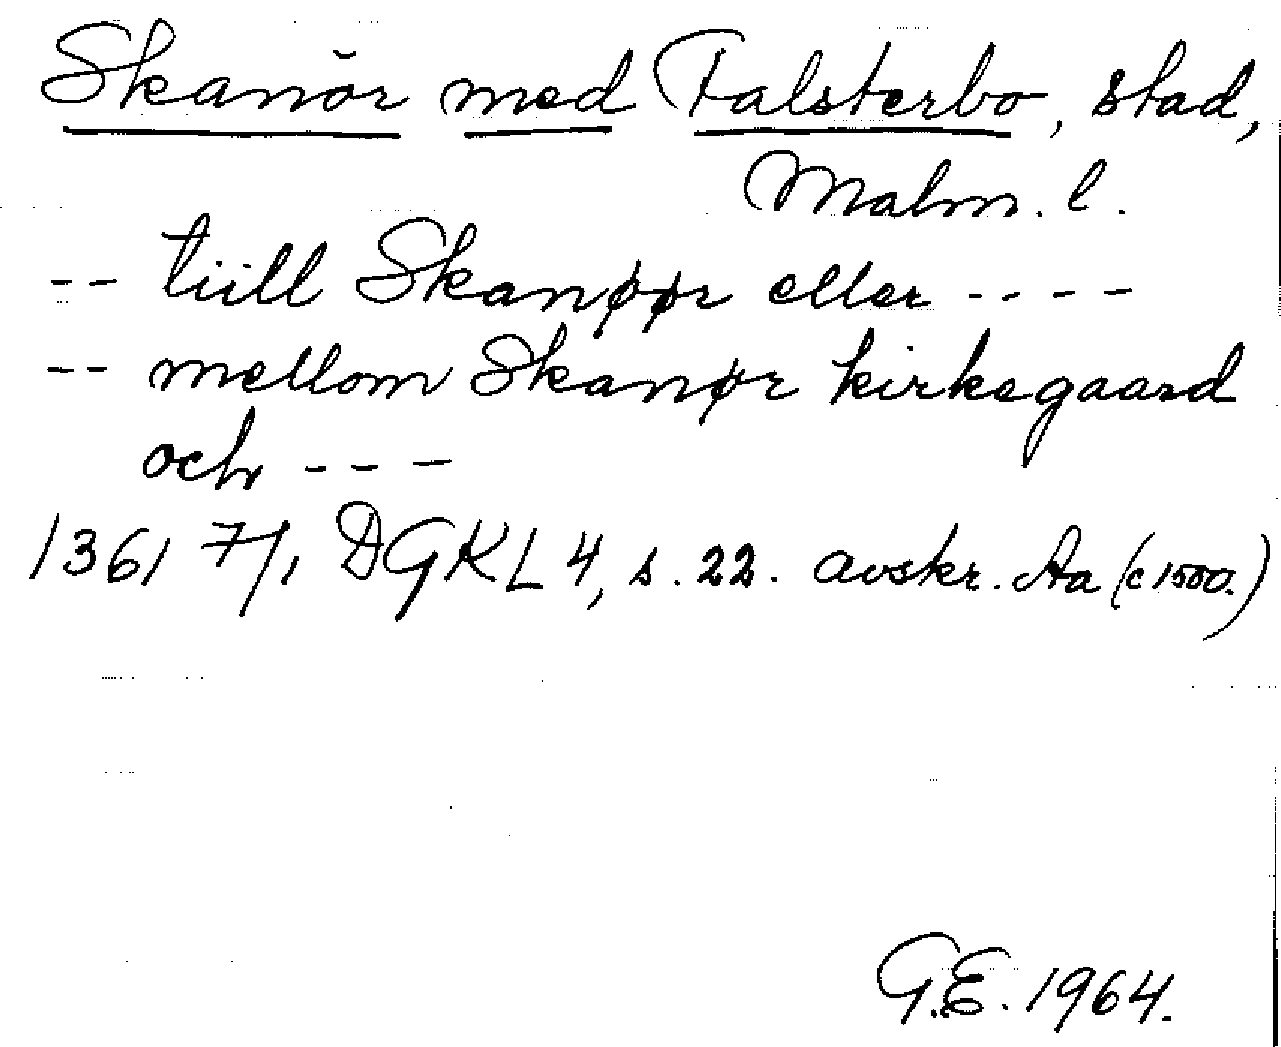 Skanör med Falsterbo, stad,
Malm. l.
-- tiill Skanøør eller ----
-- mellom Skanør kirkegaard
och ---
1361 7/1 DGKL 4, s. 22. avskr. Aa (c 1500.)
G.E. 1964.